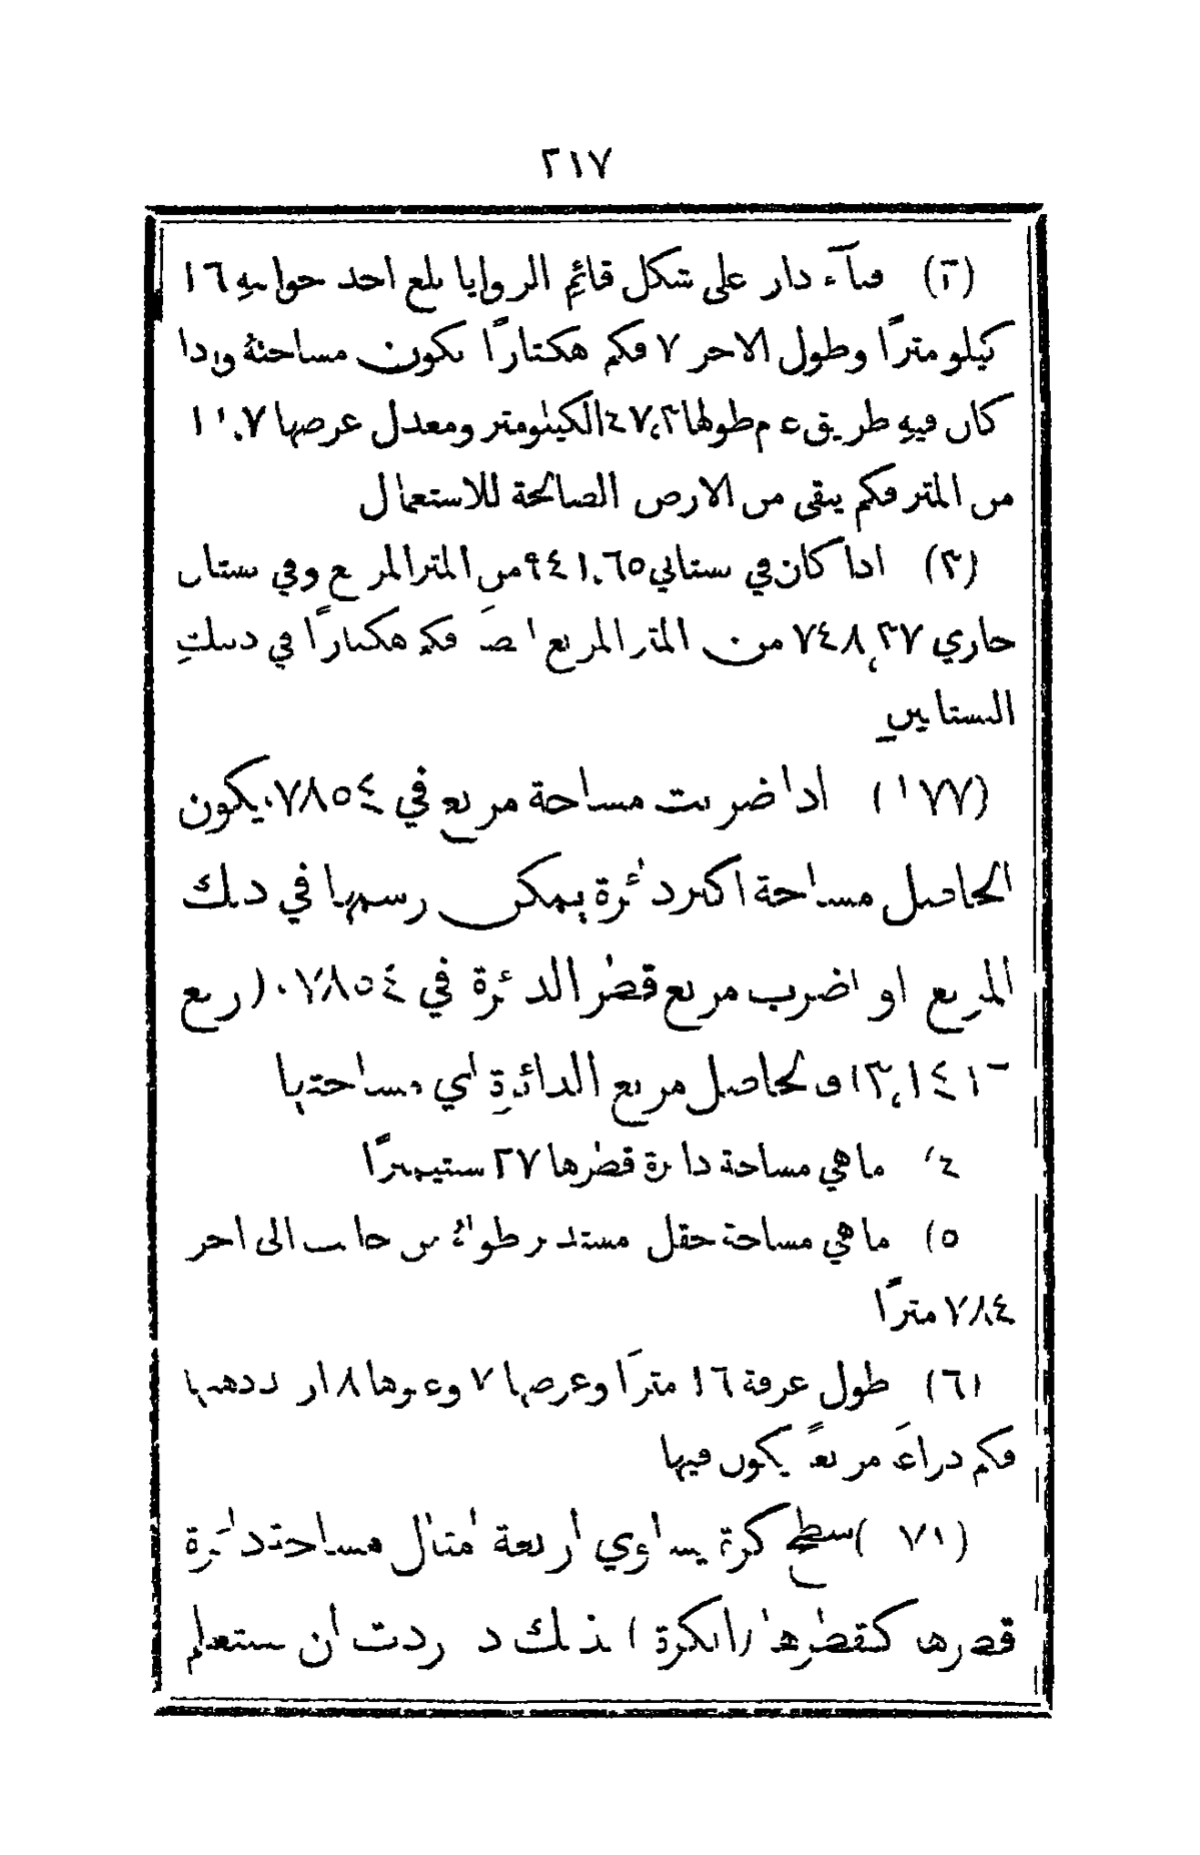 ٢١٧
(٢) فناء دار على شكل قائم الزوايا بلغ احد جوانبه ١٦
كيلومترًا وطول الاخر ٧ فكم هكتارًا تكون مساحتهُ واذا
كان فيهِ طريق طولها ٤٧,٣ الكيلومتر ومعدل عرضها
من المتر فكم يبقى من الارض الصالحة للاستعمال
(٣) اذا كان في بستاني ٩٤١,٦٥ من المتر المربع وفي بستان
جاري ٧٤٨,٣٧ من المتر المربع ايضًا فكم هكتارًا في ذينك
البستانين
(١٧٧) اذا ضربت مساحة مربع في ٠,٧٨٥٤ يكون
الحاصل مساحة اكبر دائرة يمكن رسمها في ذلك
المربع او اضرب مربع قطر الدائرة في ٠,٧٨٥٤ (ربع
٣,١٤١٦) والحاصل مربع الدائرة اي مساحتها
(٤) ما هي مساحة دائرة قطرها ٢٧ سنتيمترًا
(٥) ما هي مساحة حقل مستدير طولهُ من جانب الى اخر
٧٨٤ مترًا
(٦) طول غرفة ١٦ مترًا وعرضها ٧ وعلوها ٨
فكم ذراعًا مربعًا يكون فيها
(١٧٨) سطح كرة يساوي اربعة امثال مساحة دائرة
قطرها كقطرها (الكرة) لذلك اذا اردت ان تستعلم